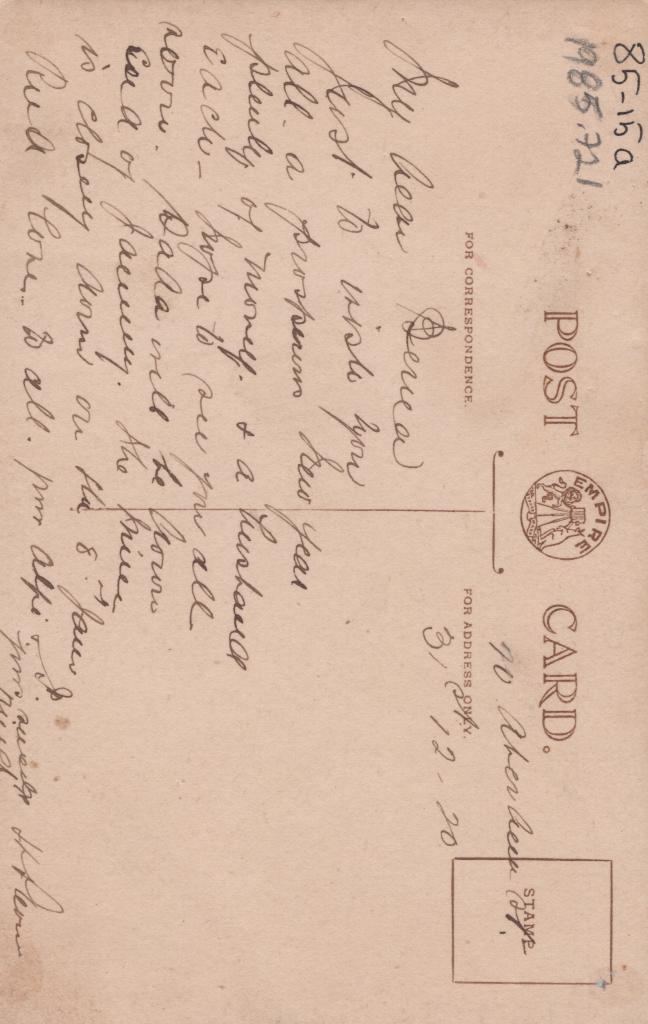 85-15a
1985.721
POST CARD.
EMPIRE
FOR CORRESPONDENCE.
FOR ADDRESS ONLY.
STAMP
70 Aberdeen St.
31st 12-20
My dear
Just to wish you
all a prosperous New year
plenty of money. & a husband
each- hope to see you all
soon. Dada will be down
End of January. the
is closing down on the 8th Jan
And Love to all. from Alfie & I.
your
friend